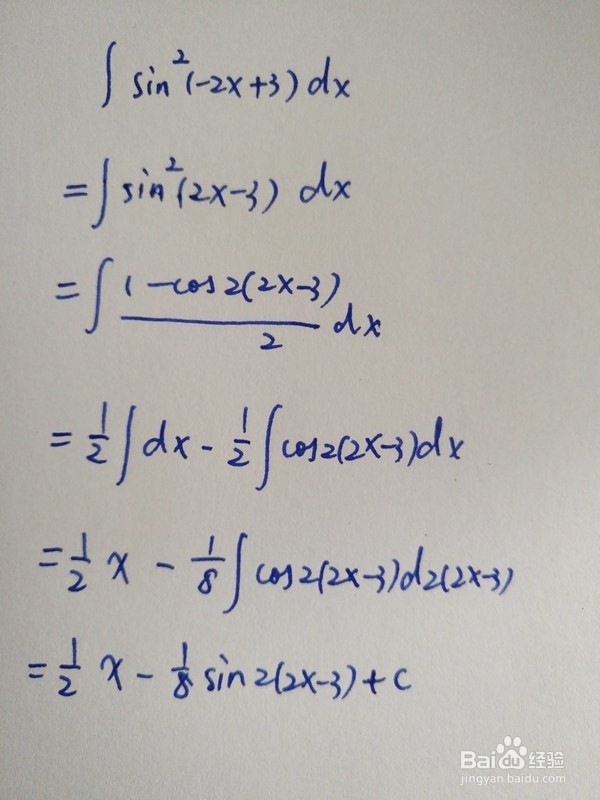 ∫ sin²(-2x+3) dx
= ∫ sin²(2x-3) dx
= ∫ (1-cos2(2x-3))/2 dx
= 1/2 ∫ dx - 1/2 ∫ cos2(2x-3) dx
= 1/2 x - 1/8 ∫ cos2(2x-3) d2(2x-3)
= 1/2 x - 1/8 sin2(2x-3) + C
Baidu经验
jingyan.baidu.com